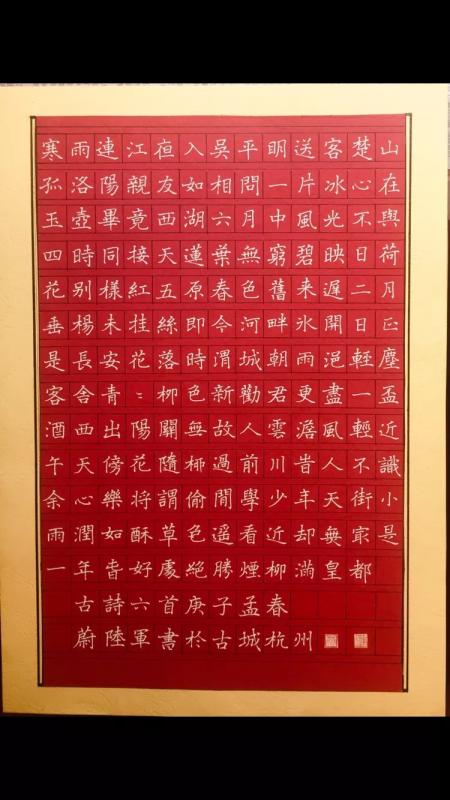 寒雨連江亱入吳平明送客楚山
孤洛陽親友如相問一片冰心在
玉壺畢竟西湖六月中風光不與
四時同接天蓮葉無窮碧映日荷
花別樣紅五原春色舊來遲二月
垂楊未挂絲即今河畔氷開日正
是長安花落時渭城朝雨浥輕塵
客舍青〻柳色新勸君更盡一盃
酒西出陽關無故人雲澹風輕近
午天傍花隨柳過前川旹人不識
余心樂將謂偷閒學少年天街小
雨潤如酥草色遙看近却無冣是
一年旾好處絕勝煙柳滿皇都
古詩六首庚子孟春
蔚陸軍書於古城杭州